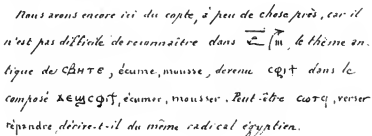 Nous avons encore ici du copte, à peu de chose près, car il
n'est pas difficile de reconnaître dans le thème an-
tique de ⲤⲂⲎⲦⲈ, écume, mousse, devenu ⲥϥⲓϯ dans le
composé ϫⲉϣⲥϥⲓϯ, écumer, mousser. Peut-être ⲥⲱⲧϥ, verser
répandre, dérive-t-il du même radical égyptien.